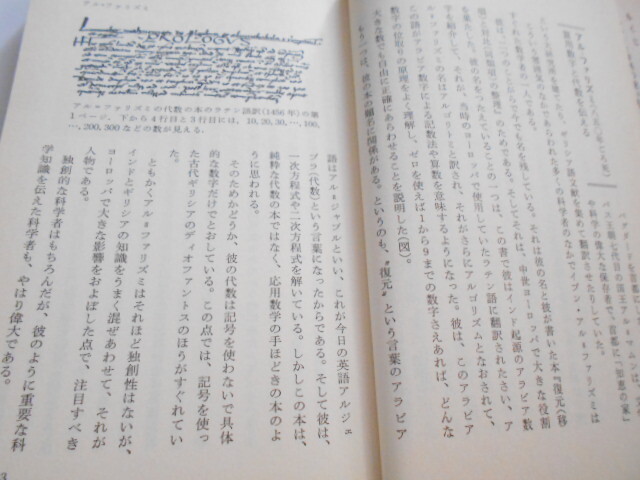 アル・ファリズミ
アル=ファリズミの代数の本のラテン語訳(1456年)の第
1ページ。下から4行目と3行目には、10,20,30,…,100,
…,200,300などの数が見える。
アル・ファリズミ
を研究所を建てたり、ギリシア語文献を集めて翻訳させたりした。
すぐれた数学者の一人である。
彼は、二つのことがらで今でも名を残している。それは彼の名と彼が書いた本『復元(移
項)と対比(同類項)の整理』のためである。そしてそれは、中世ヨーロッパで大きな役割
を果たした。彼の名をつたえていることの一つは、この書で彼はインド起源のアラビア数
字を紹介して、それが、当時のヨーロッパで使用していたラテン語に翻訳されたさい、ア
ル=ファリズミの名はアルゴリズミと訳され、それがさらにアルゴリズムとなおされて、
このアラビア数字による記数法や算数を意味するようになった。彼は、このアラビア
数字の位取りの原理をよく理解し、ゼロを使えば1から9までの数字さえあれば、どんな
大きな数でも自由に正確にあらわせることを説明した(図)。
もう一つは、彼の本の題名に関係がある。というのも、〝復元〟という言葉のアラビア
語はアル=ジャブルといい、これが今日の英語アルジェ
ブラ(代数)という言葉になったからである。そして彼は、
一次方程式や二次方程式を解いている。しかしこの本は、
純粋な代数の本ではなく、応用数学の手ほどきの本のよ
うに思われる。
そのためかどうか、彼の代数は記号を使わないで具体
的な数字だけでとおしている。この点では、記号を使っ
た古代ギリシアのディオファントスのほうがすぐれてい
た。
ともかくアル=ファリズミはそれほど独創性はないが、
インドとギリシアの知識をうまく混ぜあわせて、それが
ヨーロッパで大きな影響をおよぼした点で、注目すべき
人物である。
独創的な科学者はもちろんだが、彼のように重要な科
学知識を伝えた科学者も、やはり偉大である。